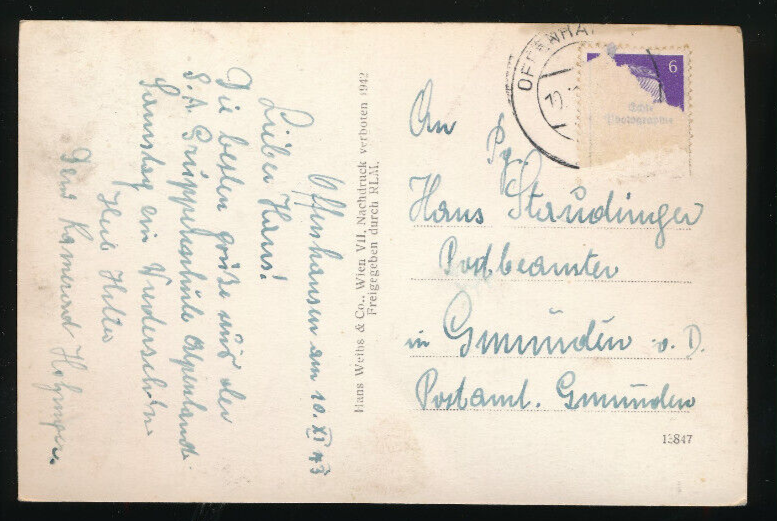 Offenhausen am 10. XI 43
Lieber Hans!
Die besten Grüße aus der
S.A. Gruppenschule Alpenland.
Samstag ein Wiedersehen
Heil Hitler
Dein Kamerad
Hans Weihs & Co., Wien VII, Nachdruck verboten 1942
Freigegeben durch RLM.
OFFENHA
10.
6
Echte
Photographie
An
Pg.
Hans Staudinger
Postbeamter
in Gmünden a. D.
Postamt. Gmunden
13847